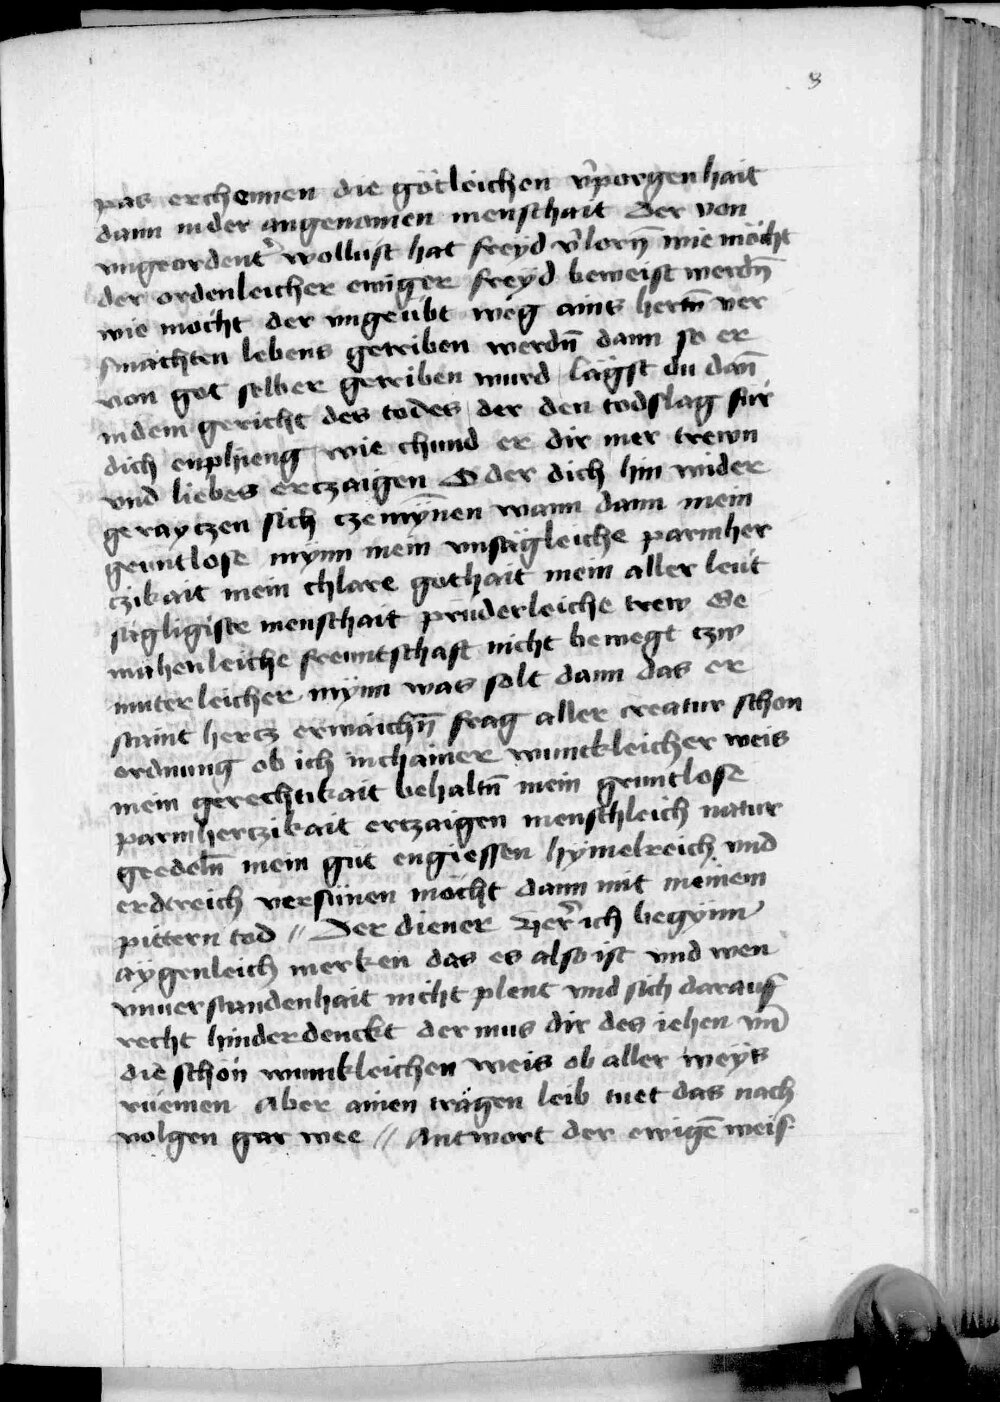 8
pas erchennen die götleichen v̉porgenhait
dann in der angenomen menschait Der von
vngeordent̉ wollust hat freyd v̉lorn̄ wie möcht
der ordenleicher ewiger freyd beweist werdn̄
wie mocht der vngeubt weg ains hertn̄ ver
smachten lebens getriben werdn̄ dann so er
von got selber getriben wurd / lägst du dan̄
in dem gericht des todes / der den todslag für
dich enphieng / wie chund er dir mer trewn
vnd liebes ertzaigen O der dich hin wider
geraytzen sich tzemÿnnen wann dann mein
gruntlose mÿnn mein vnsägleiche parmher
tzikait mein chlare gothait mein aller leüt
sägligiste menschait prüderleiche trew Ge
mahenleiche freuntschaft nicht bewegt tzw
inn̄terleicher mÿnn was solt dann das er
staint hertz erwaichn̄ frag aller creatur schon
ordnung ob ich in chainer wunckleicher weis
mein gerechtikait behaltn̄ mein gruntlose
parmhertzikait ertzaigen menschleich natur
geedeln̄ mein güt engiessen hymelreich vnd
erdtreich versünen möcht dann mit meinem
pittern tod // Der diener Her̉ ich begynn
aygenleich merken das es also ist vnd wen
vnuerstandenhait nicht plent vnd sich darauf
recht hinderdenckt der mus dir des iehen vn̄
die schön wunnkleichen weis ob aller weys
rüemen Aber ainen trägen leib tuet das nach
volgen gar wee // Antwort der ewigē weis